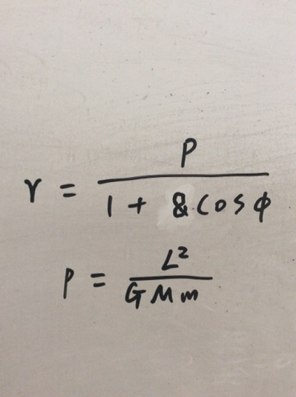 r = P / (1 + & cos φ)
P = L² / (G M m)